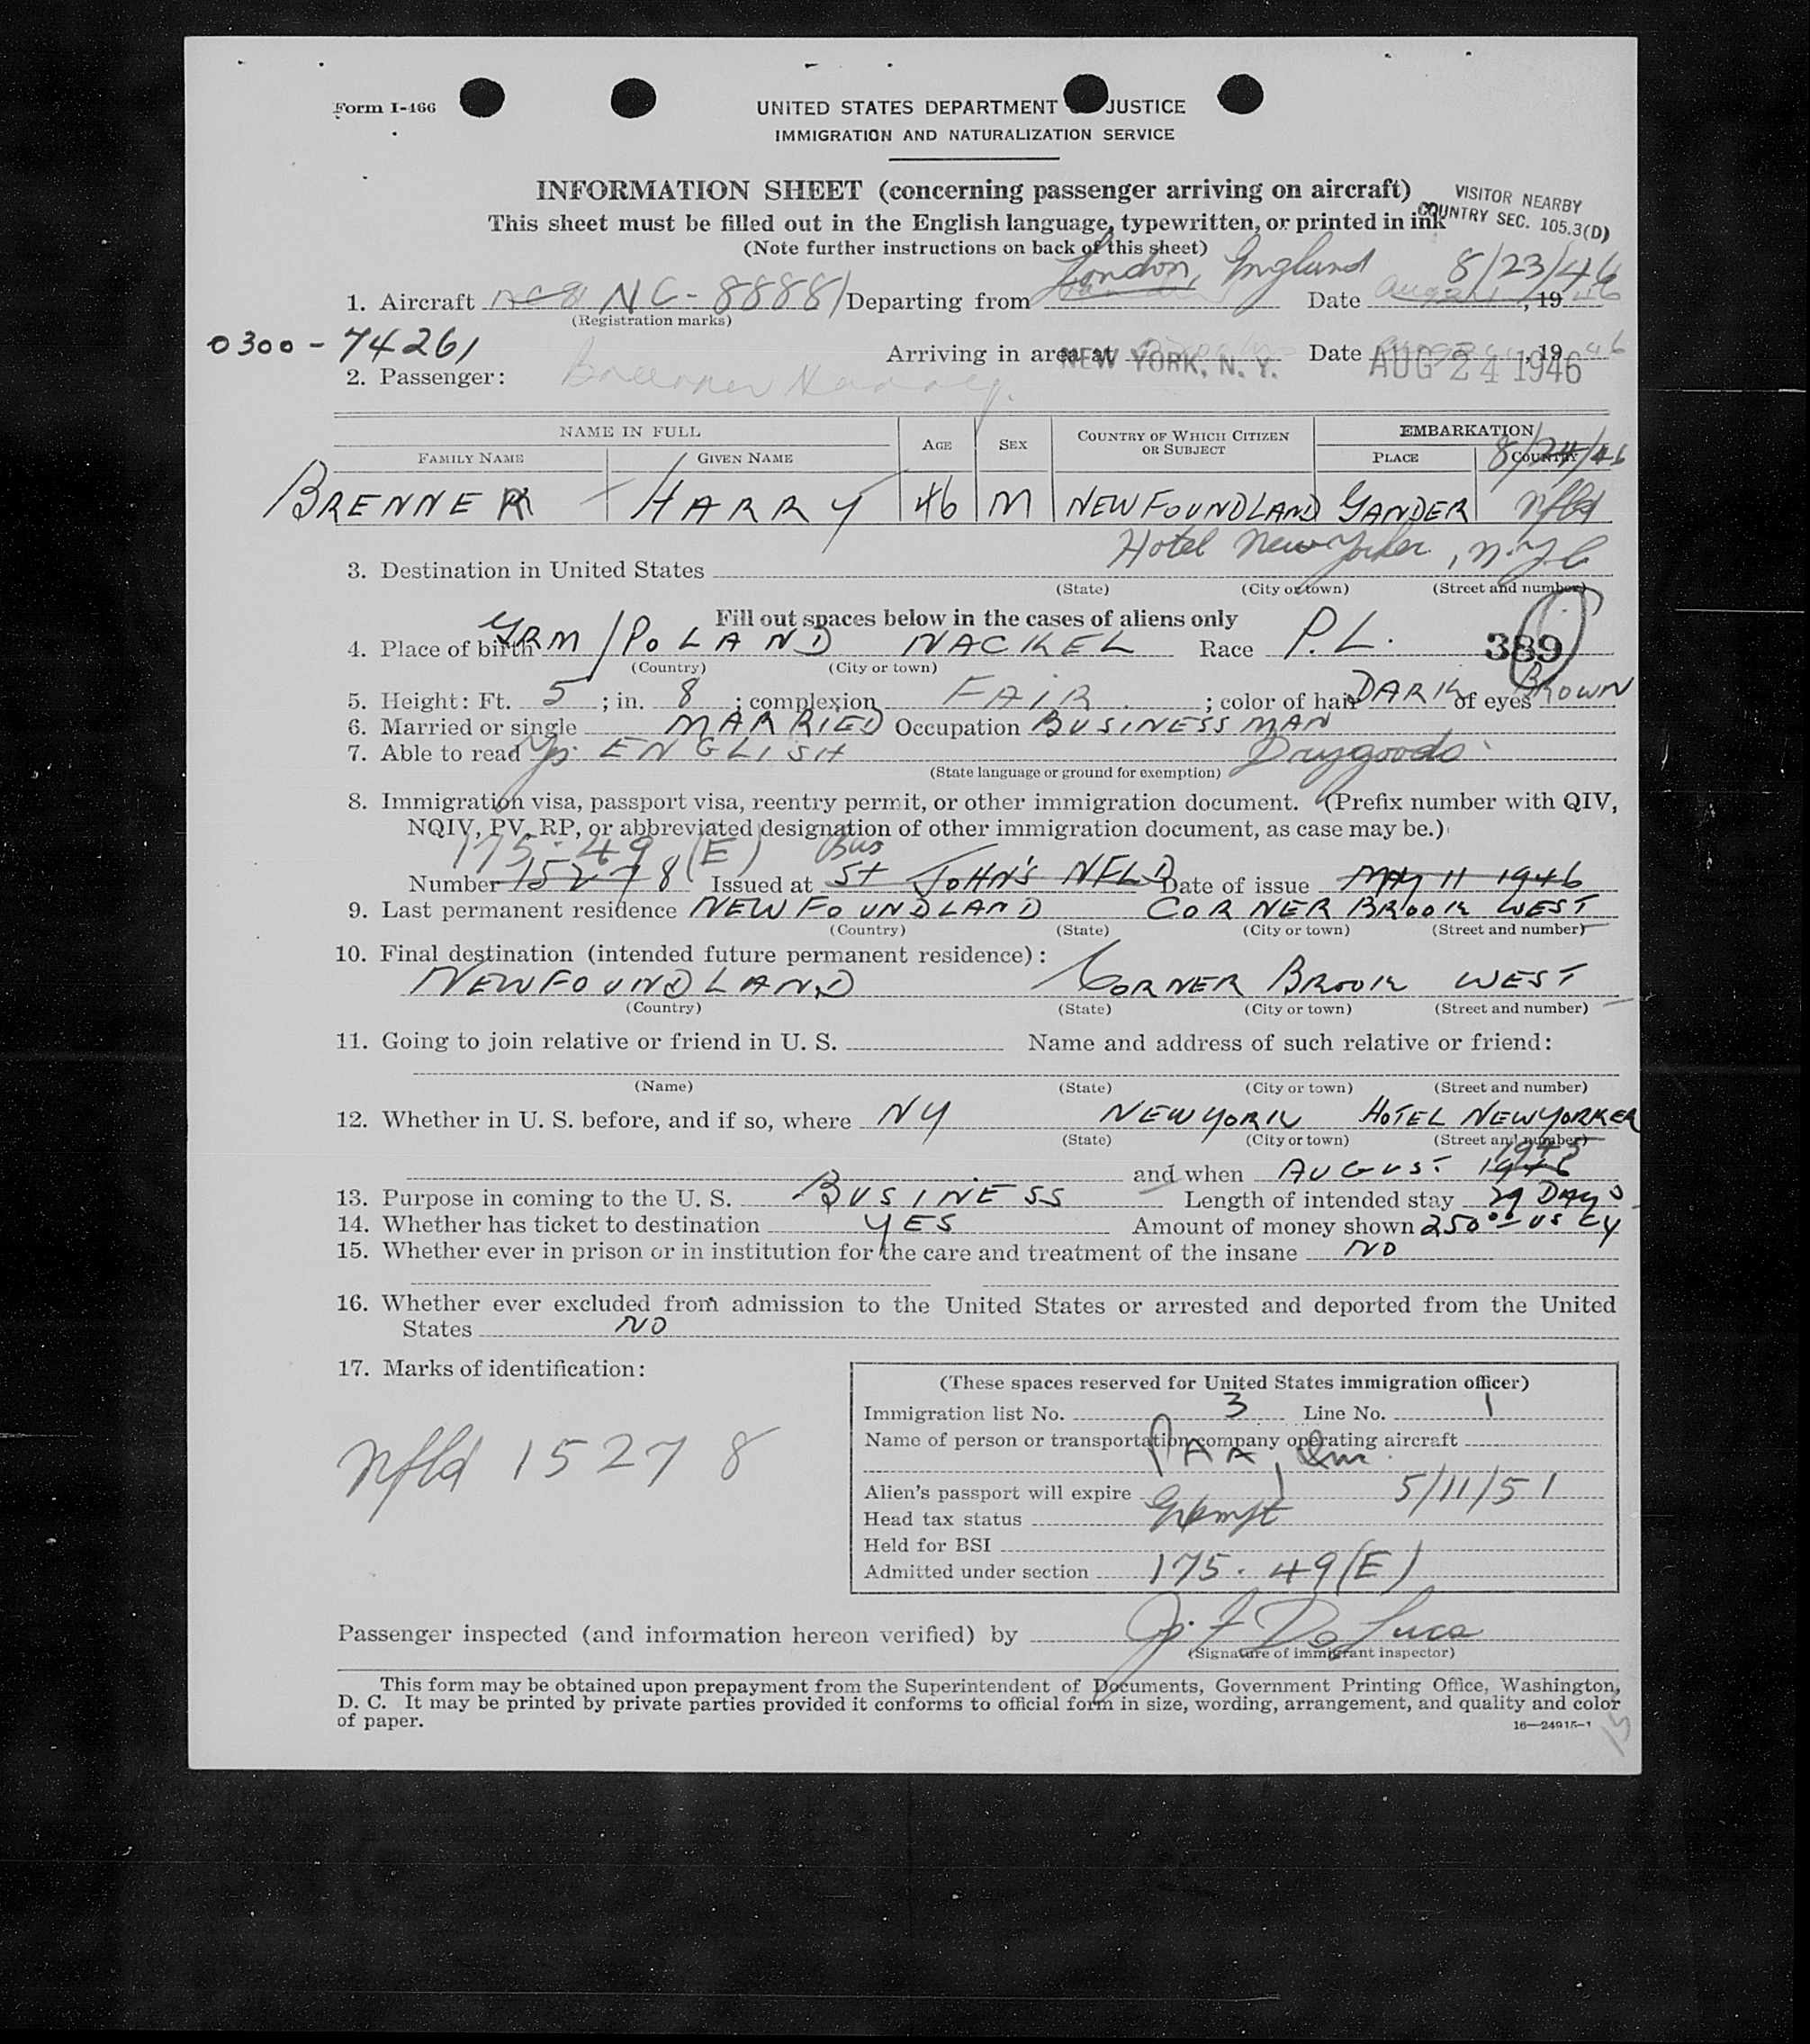 Form I-466
UNITED STATES DEPARTMENT JUSTICE
IMMIGRATION AND NATURALIZATION SERVICE
INFORMATION SHEET (concerning passenger arriving on aircraft)
VISITOR NEARBY
COUNTRY SEC. 105.3(D)
This sheet must be filled out in the English language, typewritten, or printed in ink
(Note further instructions on back of this sheet)
1. Aircraft NC-88881 Departing from London, England Date 8/23/46, 19 46
(Registration marks)
0300-74261
Arriving in area at NEW YORK, N. Y. Date AUG 24 1946, 19 46
2. Passenger: Brenner Harry
NAME IN FULL AGE SEX COUNTRY OF WHICH CITIZEN OR SUBJECT EMBARKATION
FAMILY NAME GIVEN NAME PLACE COUNTRY 8/24/46
BRENNER HARRY 46 M NEWFOUNDLAND GANDER Nfld
3. Destination in United States Hotel New Yorker, N.Y.C
(State) (City or town) (Street and number)
Fill out spaces below in the cases of aliens only
4. Place of birth GRM/POLAND NACKEL Race P.L. 389
(Country) (City or town)
5. Height: Ft. 5; in. 8; complexion FAIR; color of hair DARK of eyes BROWN
6. Married or single MARRIED Occupation BUSINESS MAN
7. Able to read Yes ENGLISH Drygoods
(State language or ground for exemption)
8. Immigration visa, passport visa, reentry permit, or other immigration document. (Prefix number with QIV,
NQIV, PV, RP, or abbreviated designation of other immigration document, as case may be.)
175-49 (E) Bus
Number 15278 Issued at St JOHN'S NFLD Date of issue MAY 11 1946
9. Last permanent residence NEWFOUNDLAND CORNER BROOK WEST
(Country) (State) (City or town) (Street and number)
10. Final destination (intended future permanent residence):
NEWFOUNDLAND CORNER BROOK WEST
(Country) (State) (City or town) (Street and number)
11. Going to join relative or friend in U. S. Name and address of such relative or friend:
(Name) (State) (City or town) (Street and number)
12. Whether in U. S. before, and if so, where NY NEW YORK HOTEL NEWYORKER
(State) (City or town) (Street and number)
and when AUGUST 1945
13. Purpose in coming to the U. S. BUSINESS Length of intended stay 29 DAYS
14. Whether has ticket to destination YES Amount of money shown 250.00 US CY
15. Whether ever in prison or in institution for the care and treatment of the insane NO
16. Whether ever excluded from admission to the United States or arrested and deported from the United
States NO
17. Marks of identification:
Nfld 15278
(These spaces reserved for United States immigration officer)
Immigration list No. 3 Line No. 1
Name of person or transportation company operating aircraft
PAA
Alien's passport will expire 5/11/51
Head tax status Exempt
Held for BSI
Admitted under section 175-49(E)
Passenger inspected (and information hereon verified) by J. F De Luca
(Signature of immigrant inspector)
This form may be obtained upon prepayment from the Superintendent of Documents, Government Printing Office, Washington,
D. C. It may be printed by private parties provided it conforms to official form in size, wording, arrangement, and quality and color
of paper.
16—24915-1
15